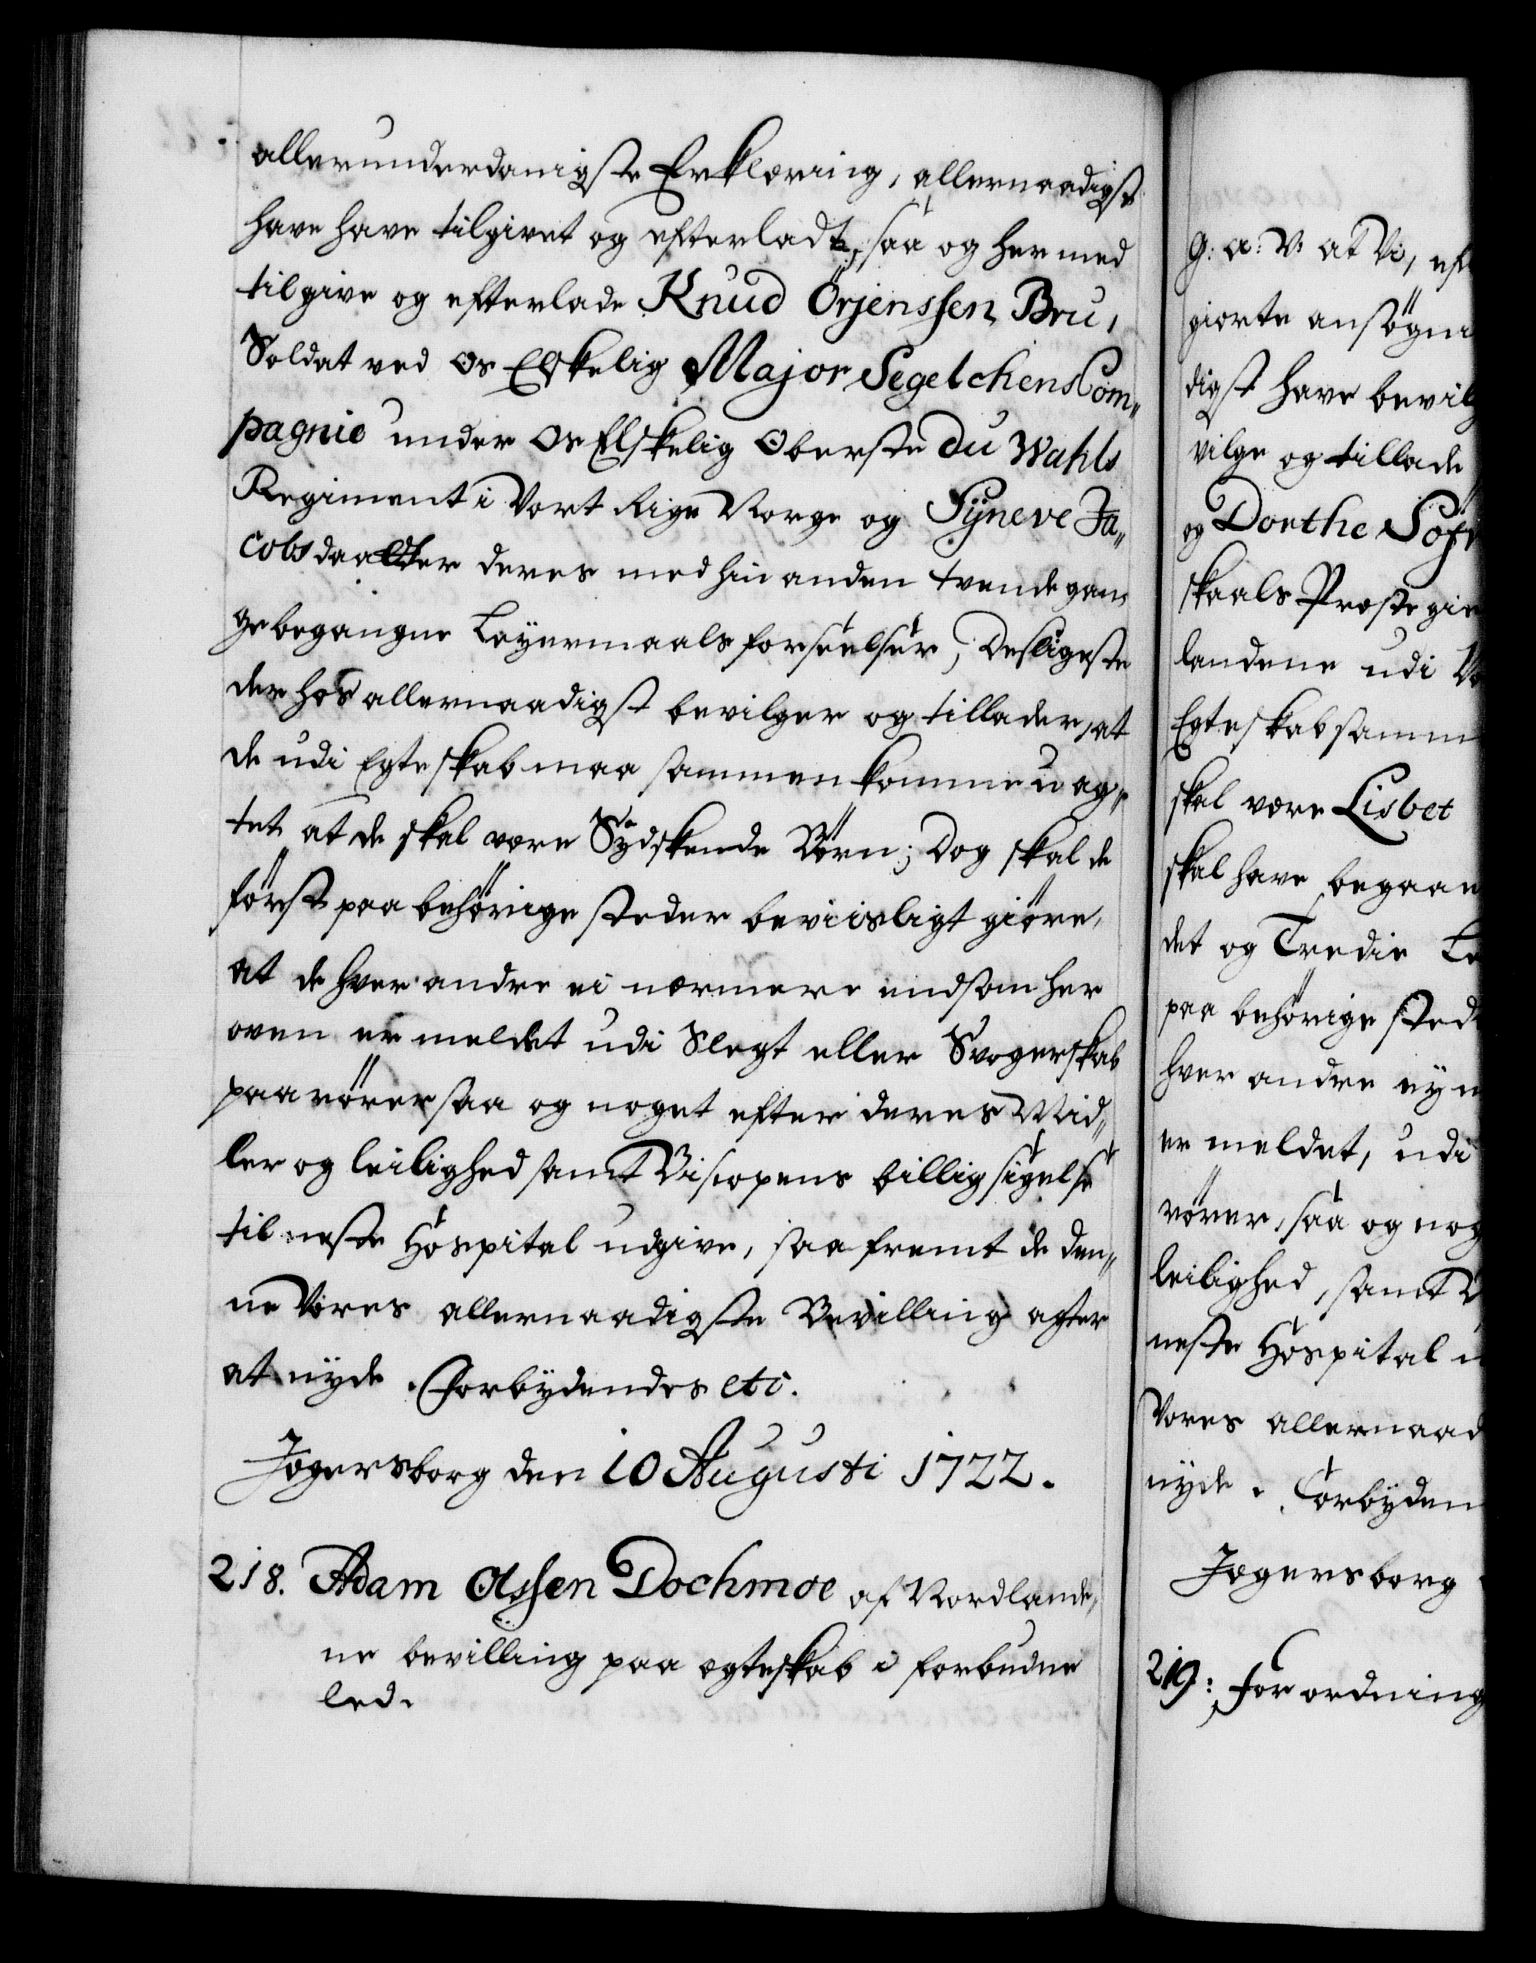 allerunderdanigste Erklæring, allernaadigst
have have tilgivet og efterladt, saa og hermed
tilgive og efterlade Knud Örjenssen Bru,
Soldat ved Os Elskelig Major Segelchens Com„
pagnie under Os Elskelig Oberste du Wahls
Regiment i Vort Rige Norge og Sÿneve Ja„
cobsdaatter deres med hin anden tvende gan„
ge begangne Leyermaals forseelser, Desligeste
der hos allernaadigst bevilger og tillader, at
de udi Egteskab maa sammen komme uag„
tet at de skal være Sydskende Börn; Dog skal de
först paa behörige steder beviisligt giöre,
at de hver andre ei nærmere end som her
oven er meldet udi Slegt eller Svogerskab
paarörer saa og noget efter deres Mid„
ler og leilighed samt Biscopens billig sigelse
til neste Hospital udgive, saafremt de den„
ne Vores allernaadigste Bevilling agter
at nyde. Forbydendes etc.
Jægersborg den 10 Augusti 1722.
218. Adam Olssen Dochmoe af Nordlande„
ne bevilling paa ægteskab i forbudne
led.
G: a: V: at Vi, eft
giorte ansögni
digst have bevilg
vilge og tillade
og Dorthe Söfr
skaals Præstegie
landene udi Vo
Egteskab samm
skal være Lisbet
skal have begaae
det og Tredie Le
paa behörige sted
hver andre ey n
er meldet, udi
rörer, saa og nog
leilighed, samt B
neste Hospital u
Vores allernaad
nyde. Forbyden
Jægersborg
219: Forordning